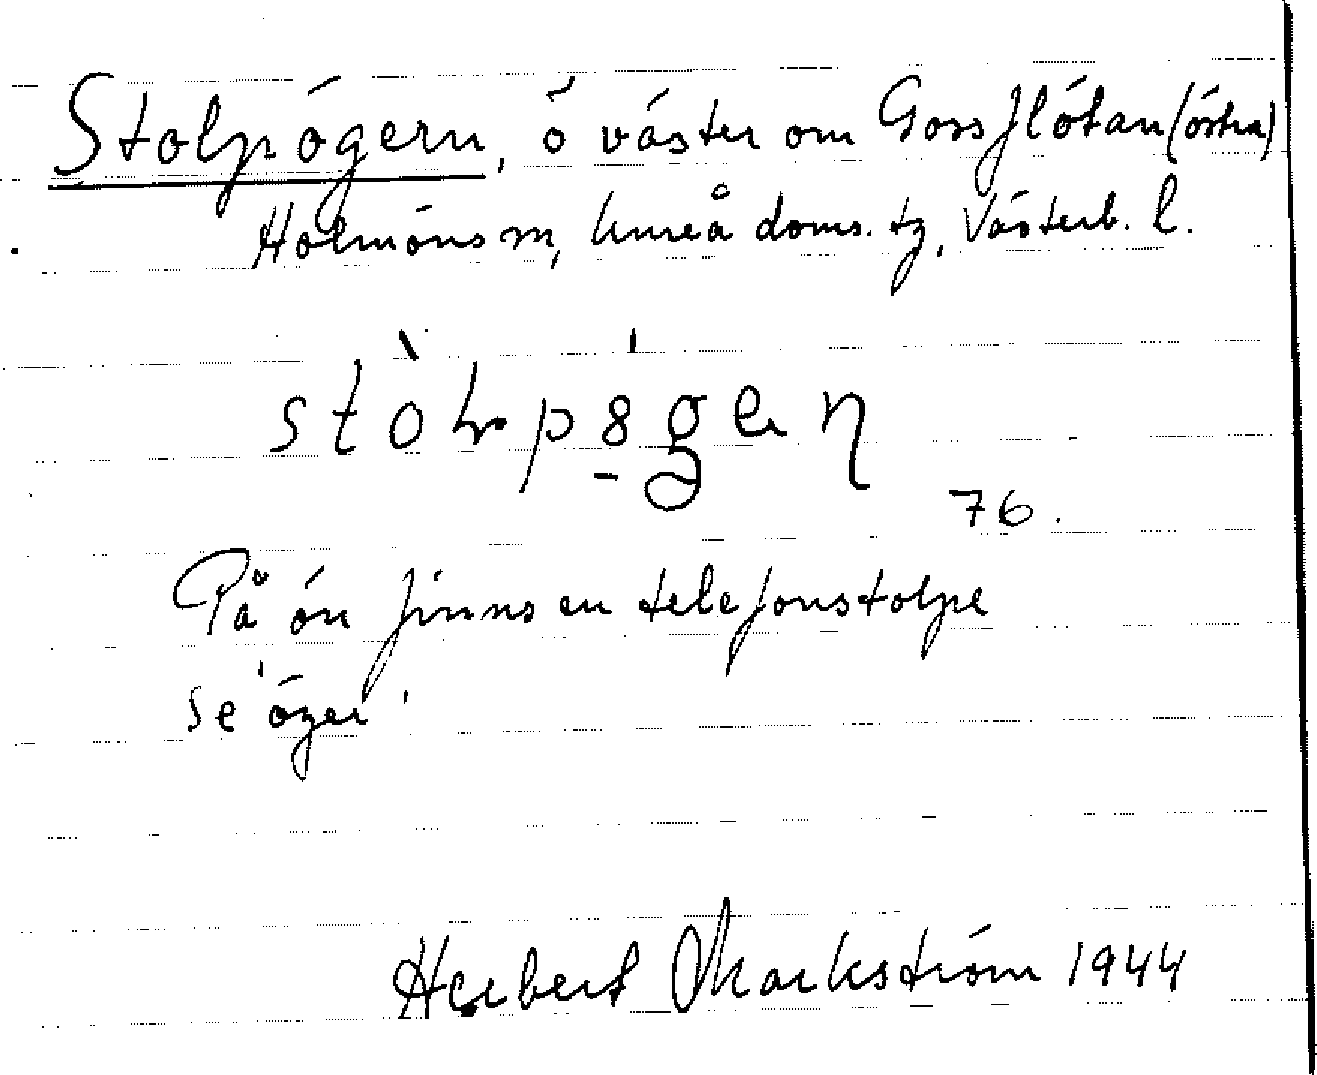 Stolpögern, ö väster om Gossflötan (östra)
Holmöns sn, Umeå doms. tg, Västerb. l.
76.
På ön finns en telefonstolpe
se 'öger'
Herbert Markström 1944